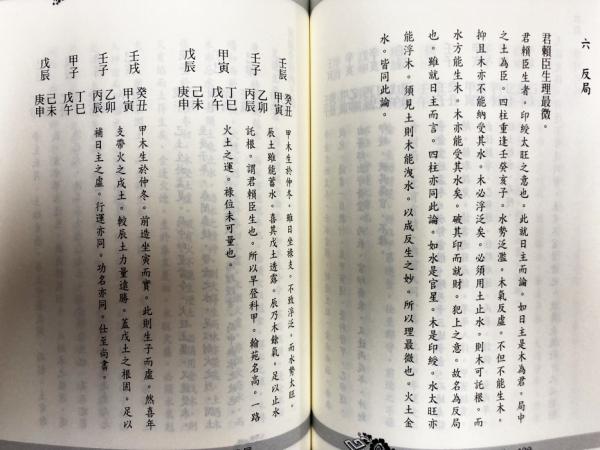 六　反局
君賴臣生理最微。
君賴臣生者，印綬太旺之意也。此就日主而論。如日主是木為君，局中
之土為臣。四柱重逢壬癸亥子。水勢泛濫。木氣反虛。不但不能生木。
抑且木亦不能納受其水。木必浮泛矣。必須用土止水，則木可託根。而
水方能生木。木亦能受其水矣。破其印而就財。犯上之意。故名為反局
也。雖就日主而言。四柱亦同此論。如水是官星。木是印綬。水太旺亦
能浮木。須見土則木能洩水。以成反生之妙。所以理最微也。火土金
水。皆同此論。
壬辰　癸丑　甲木生於仲冬，雖日坐祿支。不致浮泛。而水勢太旺。
　　　甲寅　辰土雖能蓄水。喜其戊土透露。辰乃木餘氣，足以止水
壬子　乙卯　託根。謂君賴臣生也。所以早登科甲。翰苑名高。一路
　　　丙辰　火土之運。祿位未可量也。
甲寅　丁巳
　　　戊午
戊辰　己未
　　　庚申
壬戌　癸丑　甲木生於仲冬。前造坐寅而實。此則生子而虛。然喜年
　　　甲寅　支帶火之戌土。較辰土力量遠勝。蓋戊土之根固。足以
壬子　乙卯　補日主之虛。行運亦同。功名亦同。仕至尚書。
　　　丙辰
甲子　丁巳
　　　戊午
戊辰　己未
　　　庚申